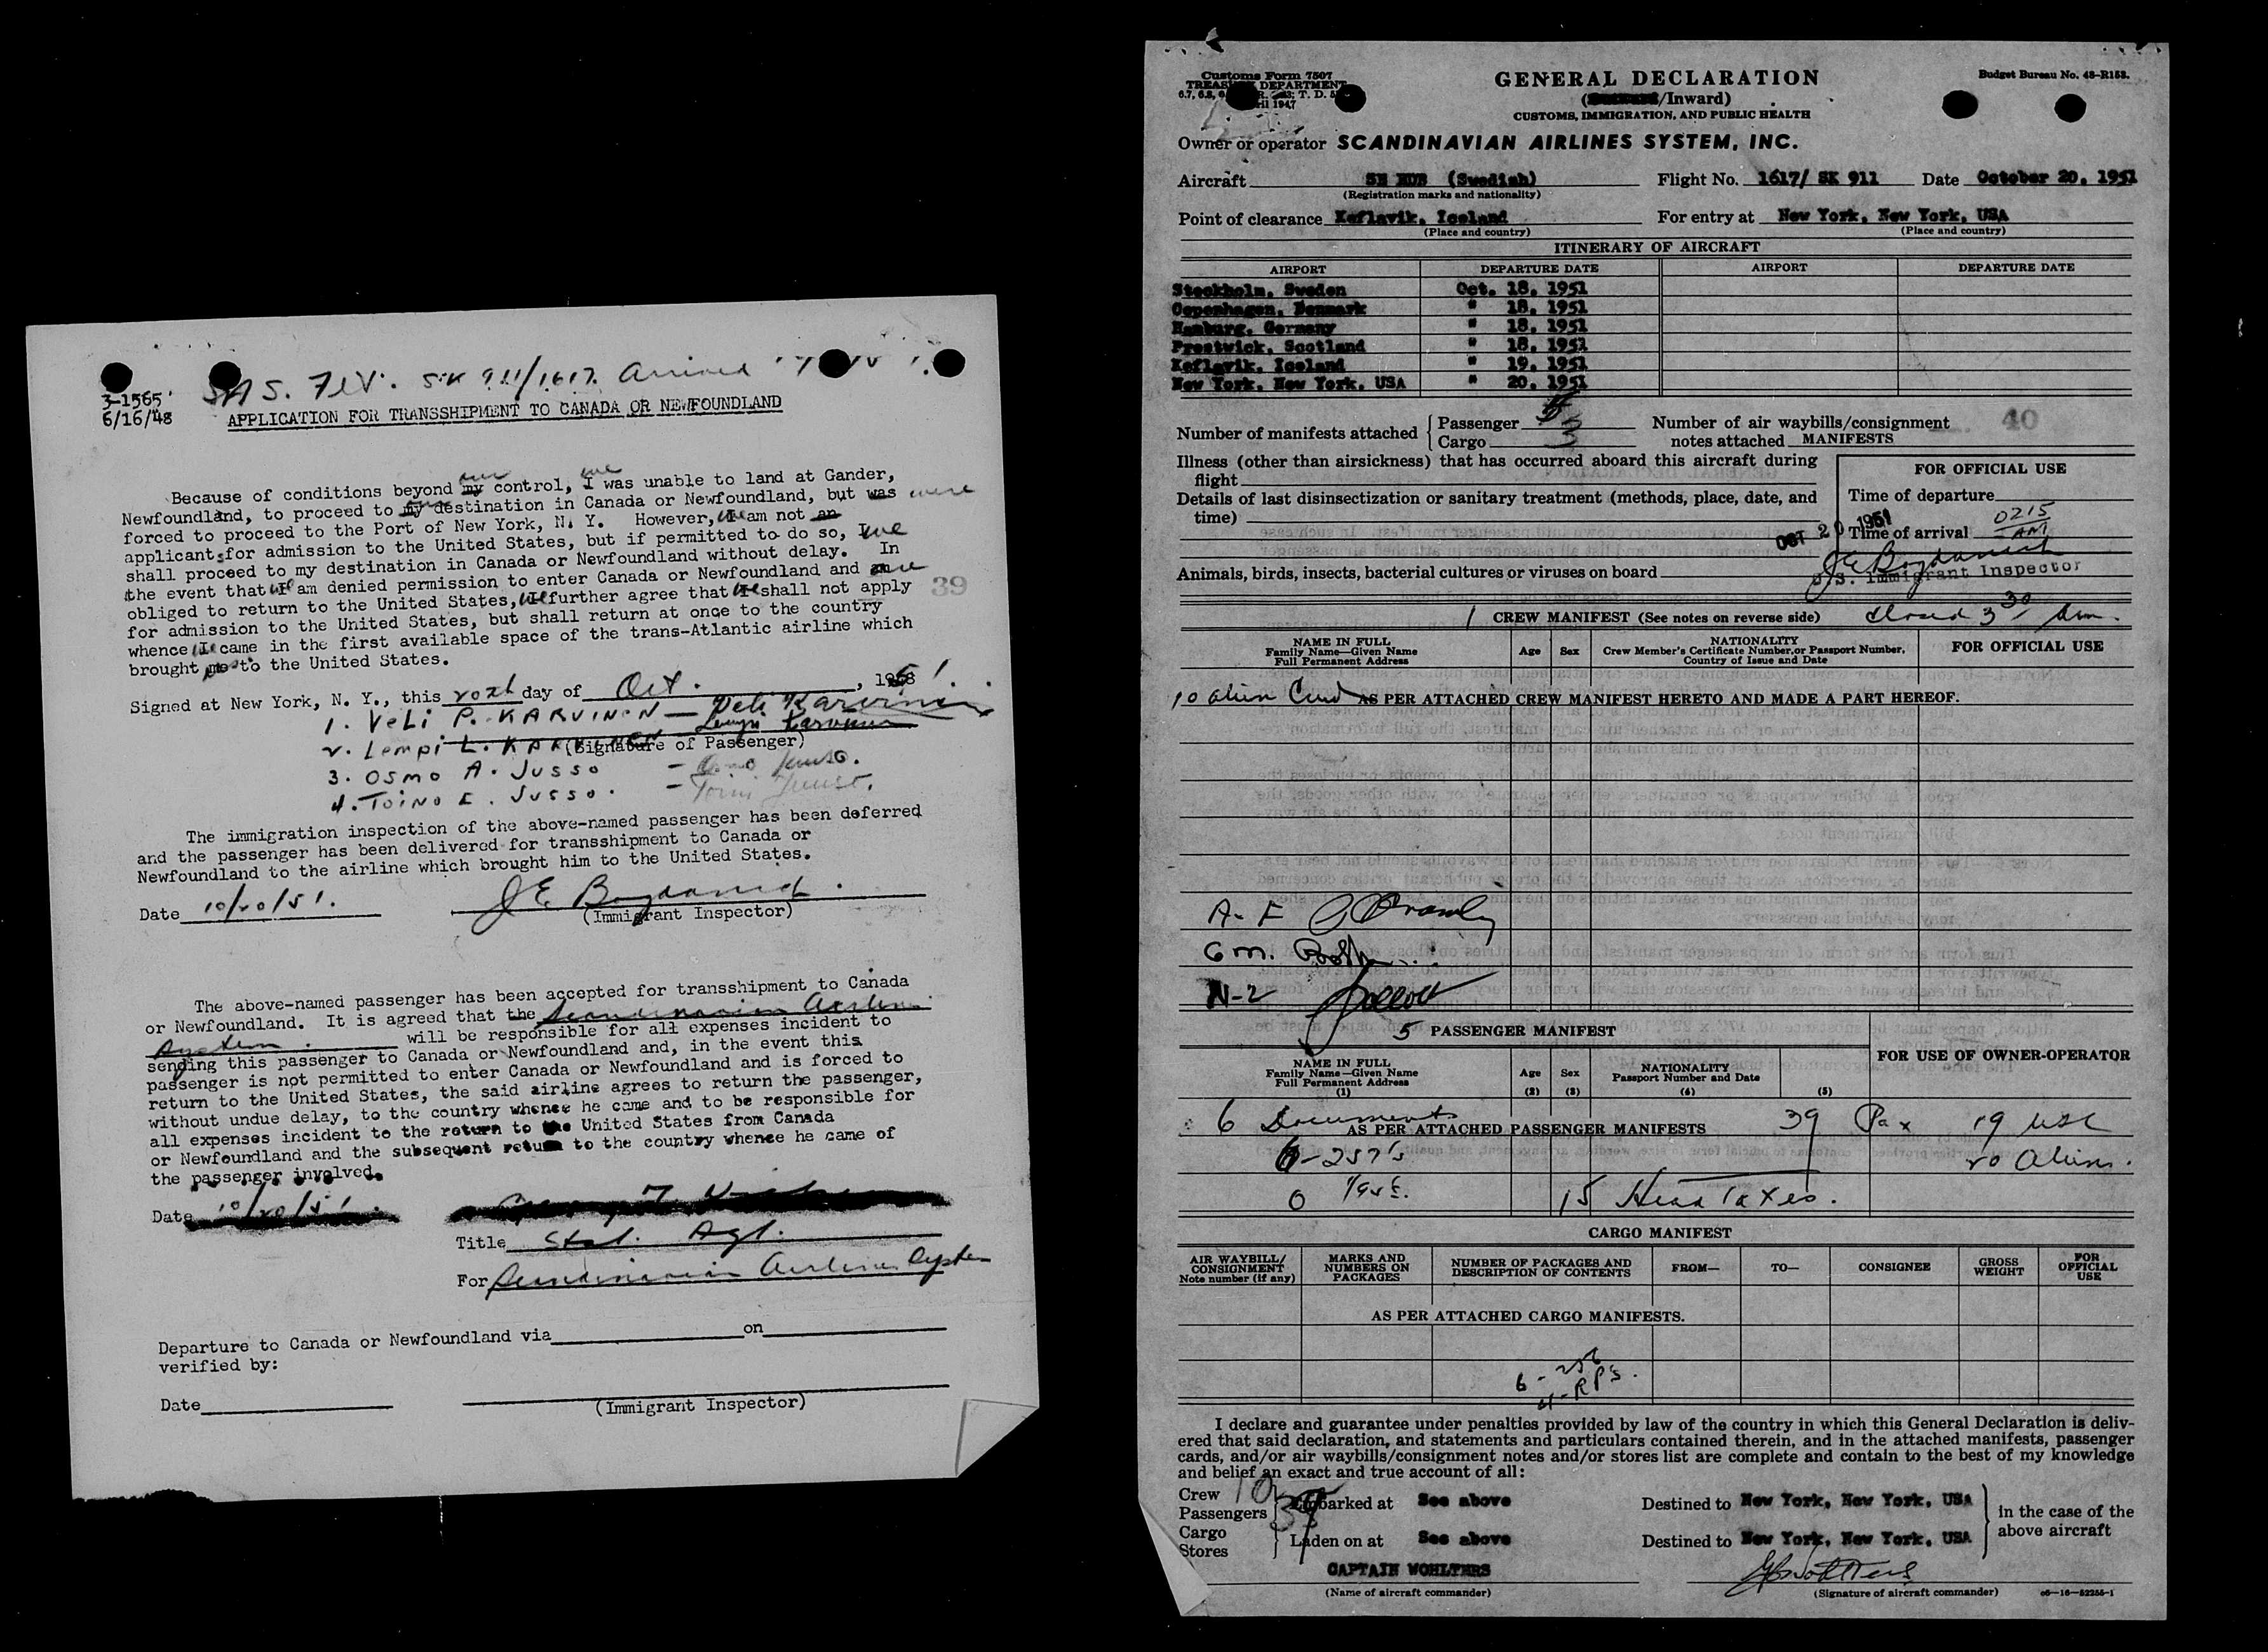 SAS. Flt. SK 911/1617. Arrived
3-1565
6/16/48
APPLICATION FOR TRANSSHIPMENT TO CANADA OR NEWFOUNDLAND
our we
Because of conditions beyond my control, I was unable to land at Gander,
Newfoundland, to proceed to my destination in Canada or Newfoundland, but was were
forced to proceed to the Port of New York, N. Y. However, we I am not an
applicants for admission to the United States, but if permitted to do so, I we
shall proceed to my destination in Canada or Newfoundland without delay. In
the event that we I am denied permission to enter Canada or Newfoundland and am are
obliged to return to the United States, we I further agree that we I shall not apply
39
for admission to the United States, but shall return at once to the country
whence we I came in the first available space of the trans-Atlantic airline which
brought me to the United States.
Signed at New York, N. Y., this 20th day of Oct. , 1951.
1. VELI P. KARVINEN — Veli Karvinen
2. Lempi L. KARVINEN Lempi Karvinen
(Signature of Passenger)
3. OSMO A. JUSSO - Osmo Juuso.
4. TOINO E. JUSSO. - Toini Juuso.
The immigration inspection of the above-named passenger has been deferred
and the passenger has been delivered for transshipment to Canada or
Newfoundland to the airline which brought him to the United States.
Date 10/20/51. J E Bogdanich.
(Immigrant Inspector)
The above-named passenger has been accepted for transshipment to Canada
or Newfoundland. It is agreed that the Scandinavian Airlines
System. will be responsible for all expenses incident to
sending this passenger to Canada or Newfoundland and, in the event this
passenger is not permitted to enter Canada or Newfoundland and is forced to
return to the United States, the said airline agrees to return the passenger,
without undue delay, to the country whence he came and to be responsible for
all expenses incident to the return to the United States from Canada
or Newfoundland and the subsequent return to the country whence he came of
the passenger involved.
Date 10/20/51.
Title Stat. Agt.
For Scandinavian Airlines System
Departure to Canada or Newfoundland via on
verified by:
Date
(Immigrant Inspector)
Customs Form 7507
TREASURY DEPARTMENT
GENERAL DECLARATION
Budget Bureau No. 48-R153.
(/Inward)
CUSTOMS, IMMIGRATION, AND PUBLIC HEALTH
Owner or operator SCANDINAVIAN AIRLINES SYSTEM, INC.
Aircraft (Swedish) Flight No. 1617/ SK 911 Date October 20, 1951
(Registration marks and nationality)
Point of clearance Keflavik, Iceland For entry at New York, New York, USA
(Place and country) (Place and country)
ITINERARY OF AIRCRAFT
AIRPORT DEPARTURE DATE AIRPORT DEPARTURE DATE
Stockholm, Sweden Oct. 18, 1951
Copenhagen, Denmark " 18, 1951
Hamburg, Germany " 18, 1951
Prestwick, Scotland " 18, 1951
Keflavik, Iceland " 19, 1951
New York, New York, USA " 20, 1951
Number of manifests attached { Passenger 5
Cargo 3
Number of air waybills/consignment
notes attached MANIFESTS
40
Illness (other than airsickness) that has occurred aboard this aircraft during
flight
Details of last disinsectization or sanitary treatment (methods, place, date, and
time)
Animals, birds, insects, bacterial cultures or viruses on board
FOR OFFICIAL USE
Time of departure
OCT 20 1951
Time of arrival 0215 AM
J E Bogdanich
U.S. Immigrant Inspector
1 CREW MANIFEST (See notes on reverse side) closed 3 30 Am.
NAME IN FULL
Family Name—Given Name
Full Permanent Address
Age Sex
NATIONALITY
Crew Member's Certificate Number, or Passport Number,
Country of Issue and Date
FOR OFFICIAL USE
10 alien Crew AS PER ATTACHED CREW MANIFEST HERETO AND MADE A PART HEREOF.
A-F
Gm.
N-2
5 PASSENGER MANIFEST
FOR USE OF OWNER-OPERATOR
NAME IN FULL
Family Name—Given Name
Full Permanent Address
(1)
Age
(2)
Sex
(3)
NATIONALITY
Passport Number and Date
(4)
(5)
6 Documents 39 Pax 19 USC
AS PER ATTACHED PASSENGER MANIFESTS
6-257's 20 Aliens.
0 15 Head Taxes.
CARGO MANIFEST
AIR WAYBILL/
CONSIGNMENT
Note number (if any)
MARKS AND
NUMBERS ON
PACKAGES
NUMBER OF PACKAGES AND
DESCRIPTION OF CONTENTS
FROM— TO— CONSIGNEE
GROSS
WEIGHT
FOR
OFFICIAL
USE
AS PER ATTACHED CARGO MANIFESTS.
6 - 256
4-RP's.
I declare and guarantee under penalties provided by law of the country in which this General Declaration is deliv-
ered that said declaration, and statements and particulars contained therein, and in the attached manifests, passenger
cards, and/or air waybills/consignment notes and/or stores list are complete and contain to the best of my knowledge
and belief an exact and true account of all:
Crew 10
Passengers 39
Embarked at See above Destined to New York, New York, USA
Cargo
Stores
Laden on at See above Destined to New York, New York, USA
in the case of the
above aircraft
CAPTAIN WOHLTERS
(Name of aircraft commander) (Signature of aircraft commander) 06—16—52255-1